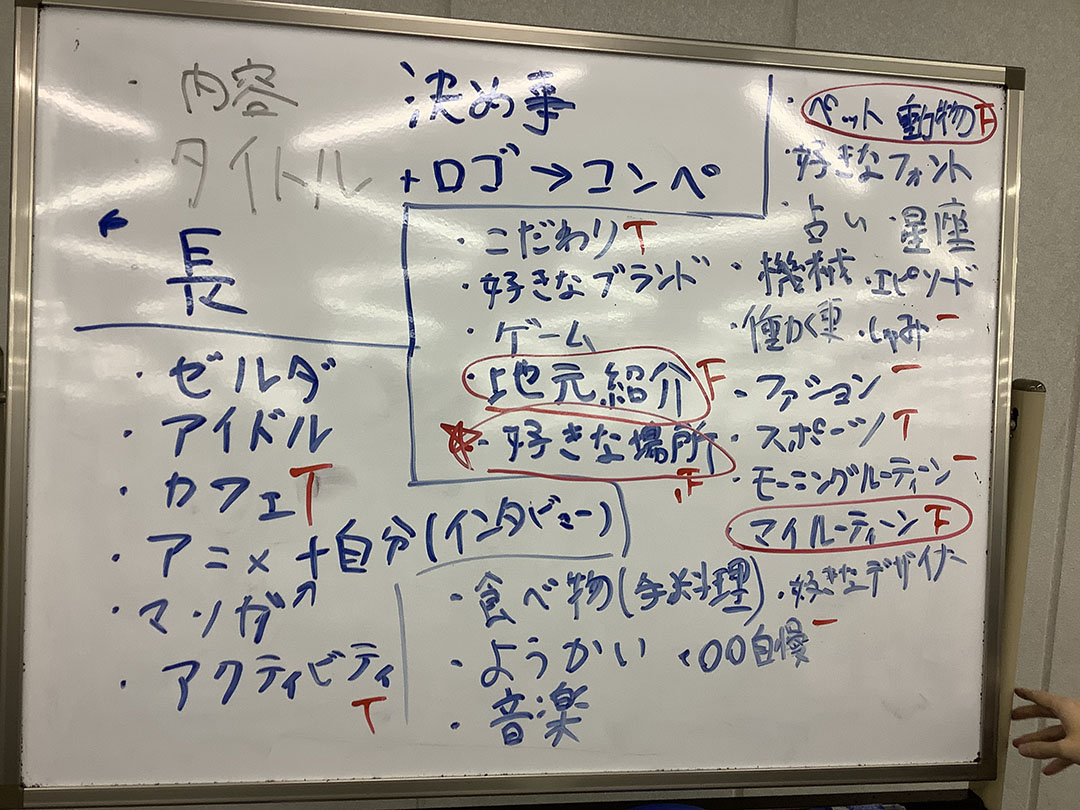 ・内容
・決め事
・タイトル
+ロゴ→コンペ
長
・ゼルダ
・アイドル
・カフェT
・アニメ+自分(インタビュー)
・マンガ
・アクティビティ
T
・こだわりT
・好きなブランド
・ゲーム
・地元紹介F
・好きな場所
F
・食べ物(手料理)
・ようかい
・〇〇自慢ー
・音楽
・ペット 動物F
・好きなフォント
・占い ・星座
・機械 ・エピソード
・働く車 ・しゅみー
・ファッションー
・スポーツT
・モーニングルーティーンー
・マイルーティーンF
・好きなデザイナー